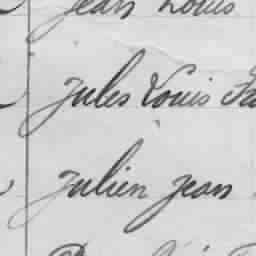 Jean Louis
Jules Louis
Julien Jean